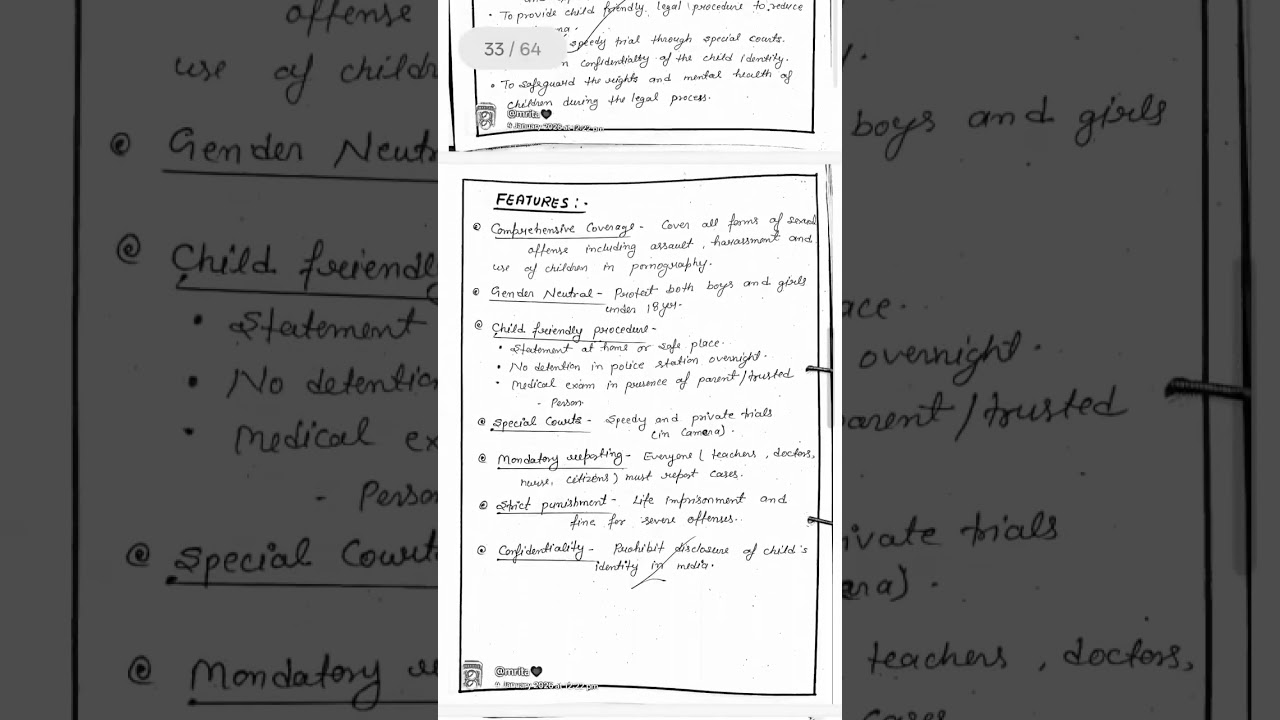 • To provide child friendly legal procedure to reduce
33 / 64
speedy trial through special courts.
confidentiality of the child identity.
• To safeguard the rights and mental health of
children during the legal process.
@mrita🖤
9 January 2026 at 12:22 pm
FEATURES :-
Comprehensive Coverage - Cover all forms of sexual
offense including assault, harassment and
use of children in pornography.
Gender Neutral - Protect both boys and girls
under 18 yrs.
Child friendly procedure -
• Statement at home or safe place.
• No detention in police station overnight.
• Medical exam in presence of parent/trusted
- Person
Special Courts - Speedy and private trials
(in camera).
Mandatory reporting - Everyone (teachers, doctors,
nurse, citizens) must report cases.
Strict punishment - Life Imprisonment and
fine for severe offenses.
Confidentiality - Prohibit disclosure of child's
identity in media.
@mrita🖤
9 January 2026 at 12:22 pm